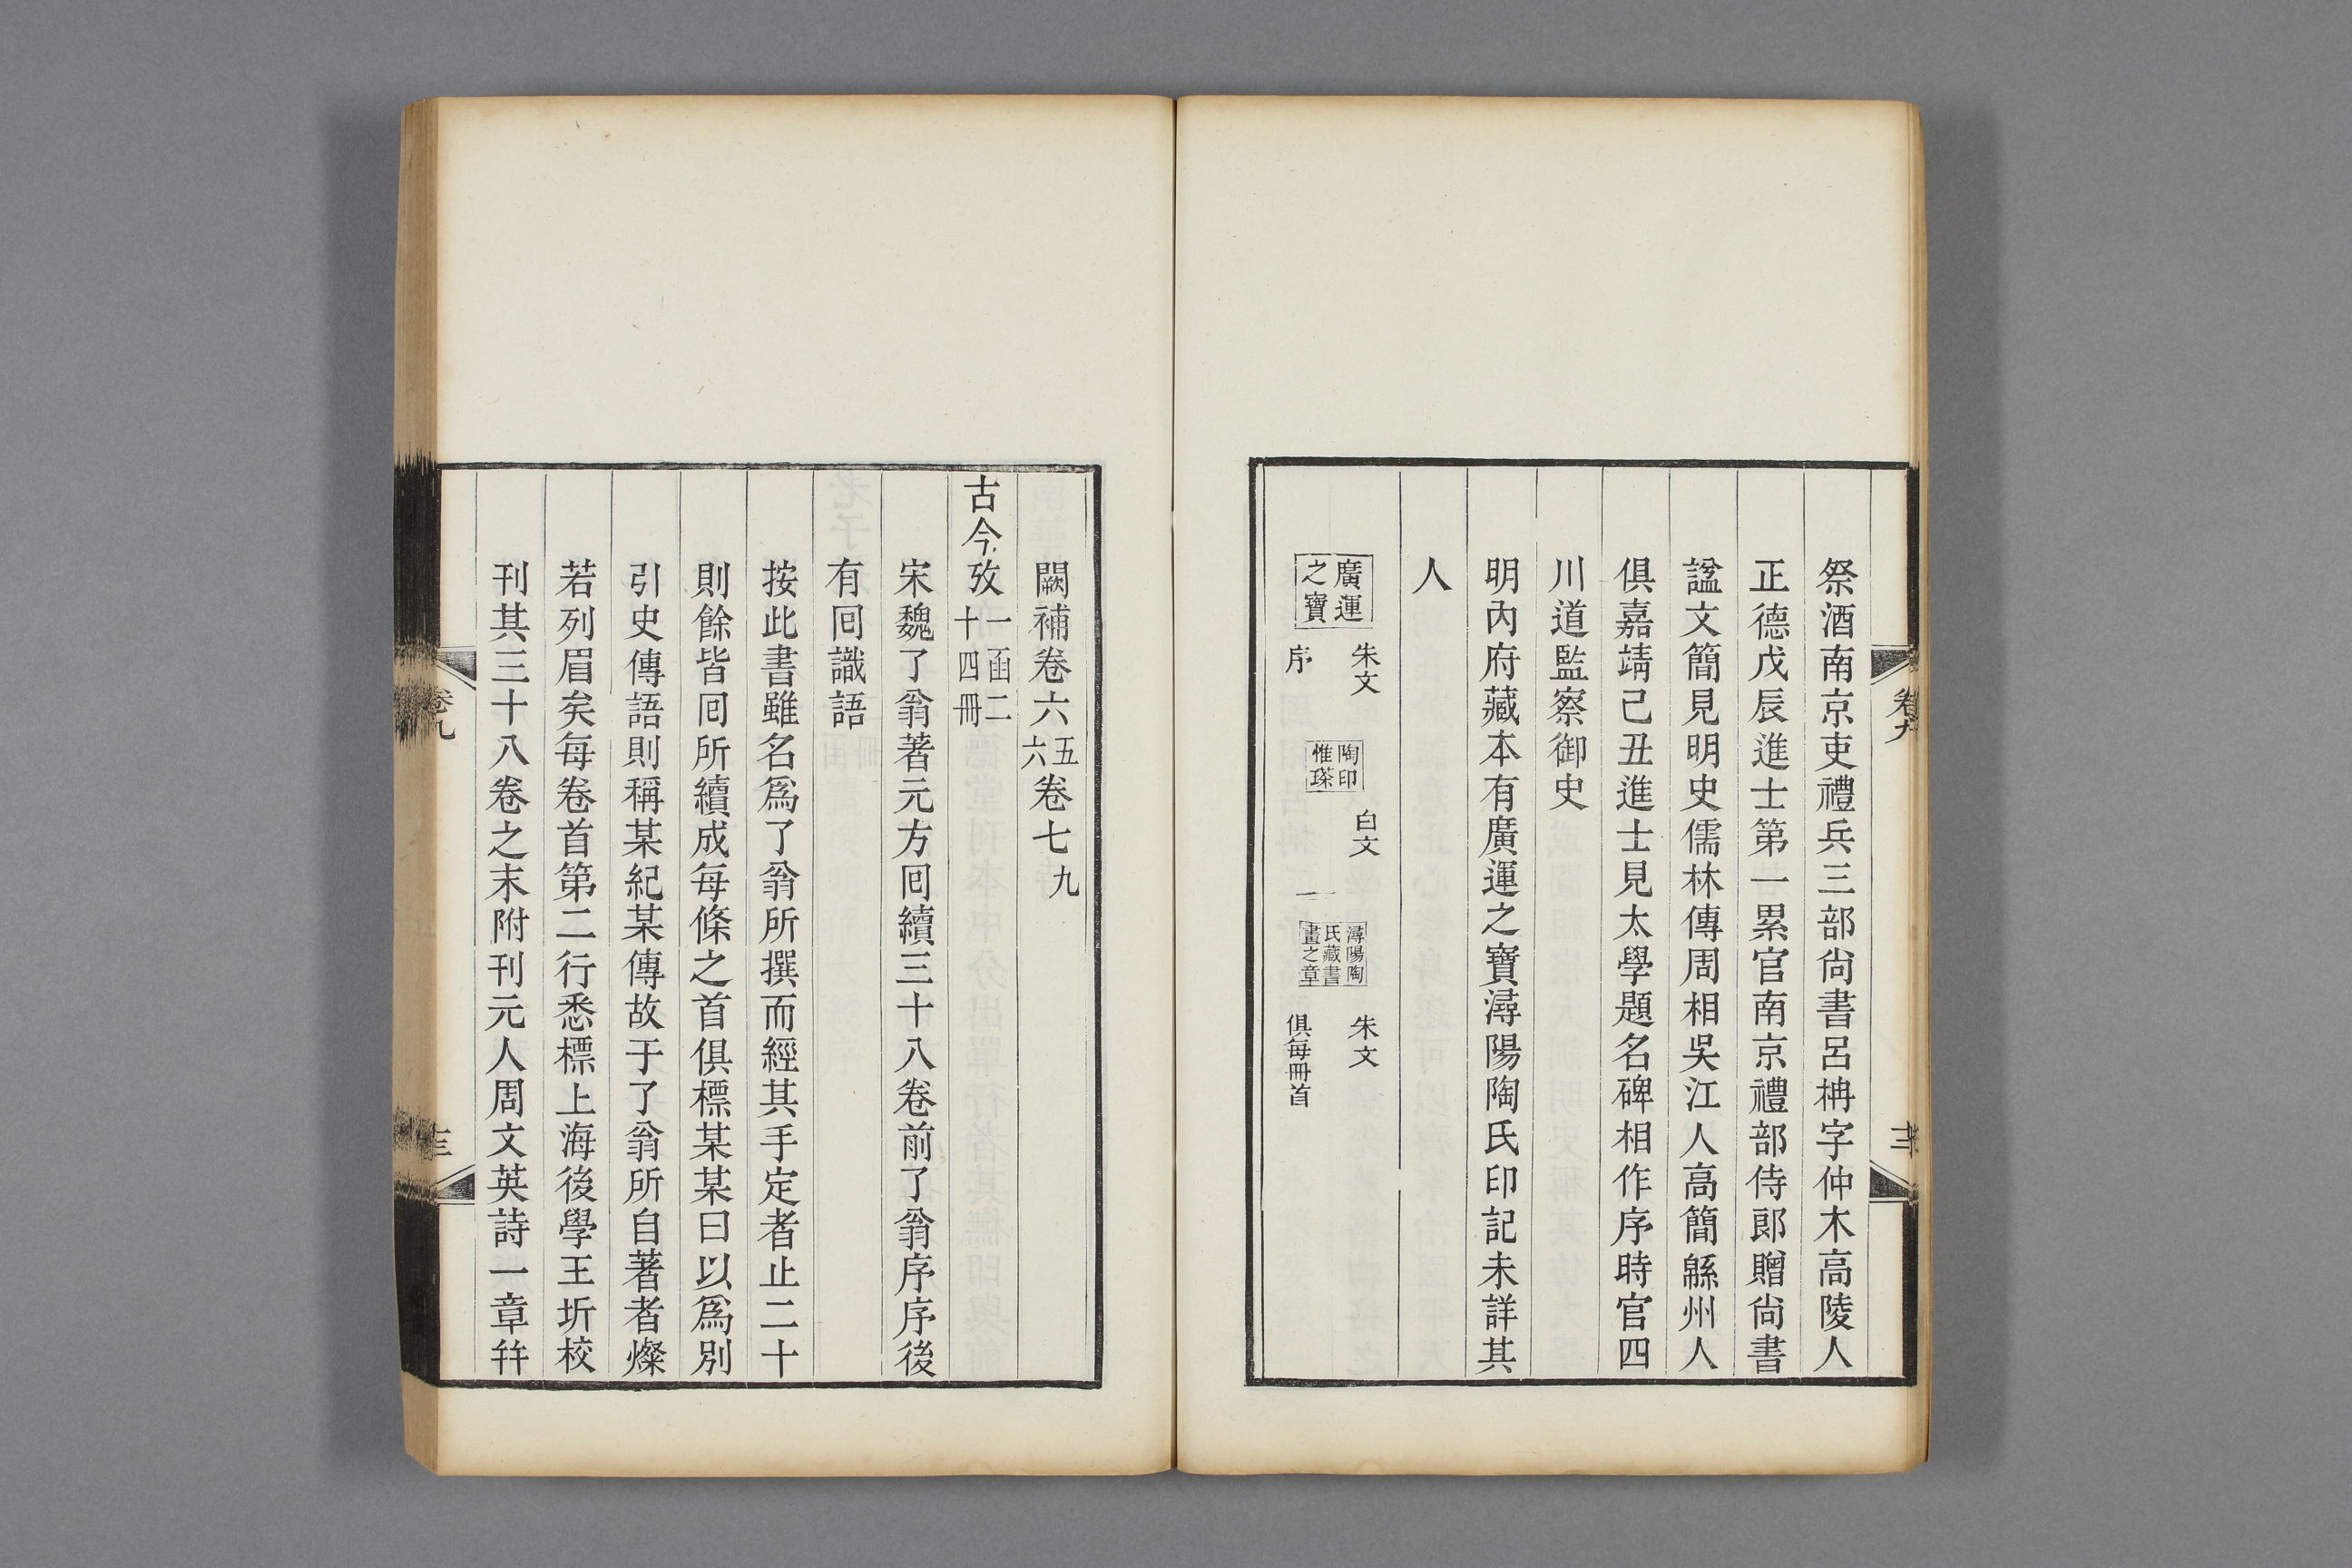 祭酒南京吏禮兵三部尙書呂柟字仲木高陵人
正德戊辰進士第一累官南京禮部侍郞贈尙書
諡文簡見明史儒林傳周相吳江人高簡緜州人
俱嘉靖己丑進士見太學題名碑相作序時官四
川道監察御史
明內府藏本有廣運之寶潯陽陶氏印記未詳其
人
廣運之寶
朱文
序
陶印惟琛
白文
潯陽陶氏藏書畫之章
朱文
俱每冊首
卷九
闕補卷六五六卷七九
古今攷一函二十四冊
宋魏了翁著元方囘續三十八卷前了翁序序後
有囘識語
按此書雖名爲了翁所撰而經其手定者止二十
則餘皆囘所續成每條之首俱標某某曰以爲別
引史傳語則稱某紀某傳故于了翁所自著者燦
若列眉矣每卷首第二行悉標上海後學王圻校
刊其三十八卷之末附刊元人周文英詩一章幷
卷九